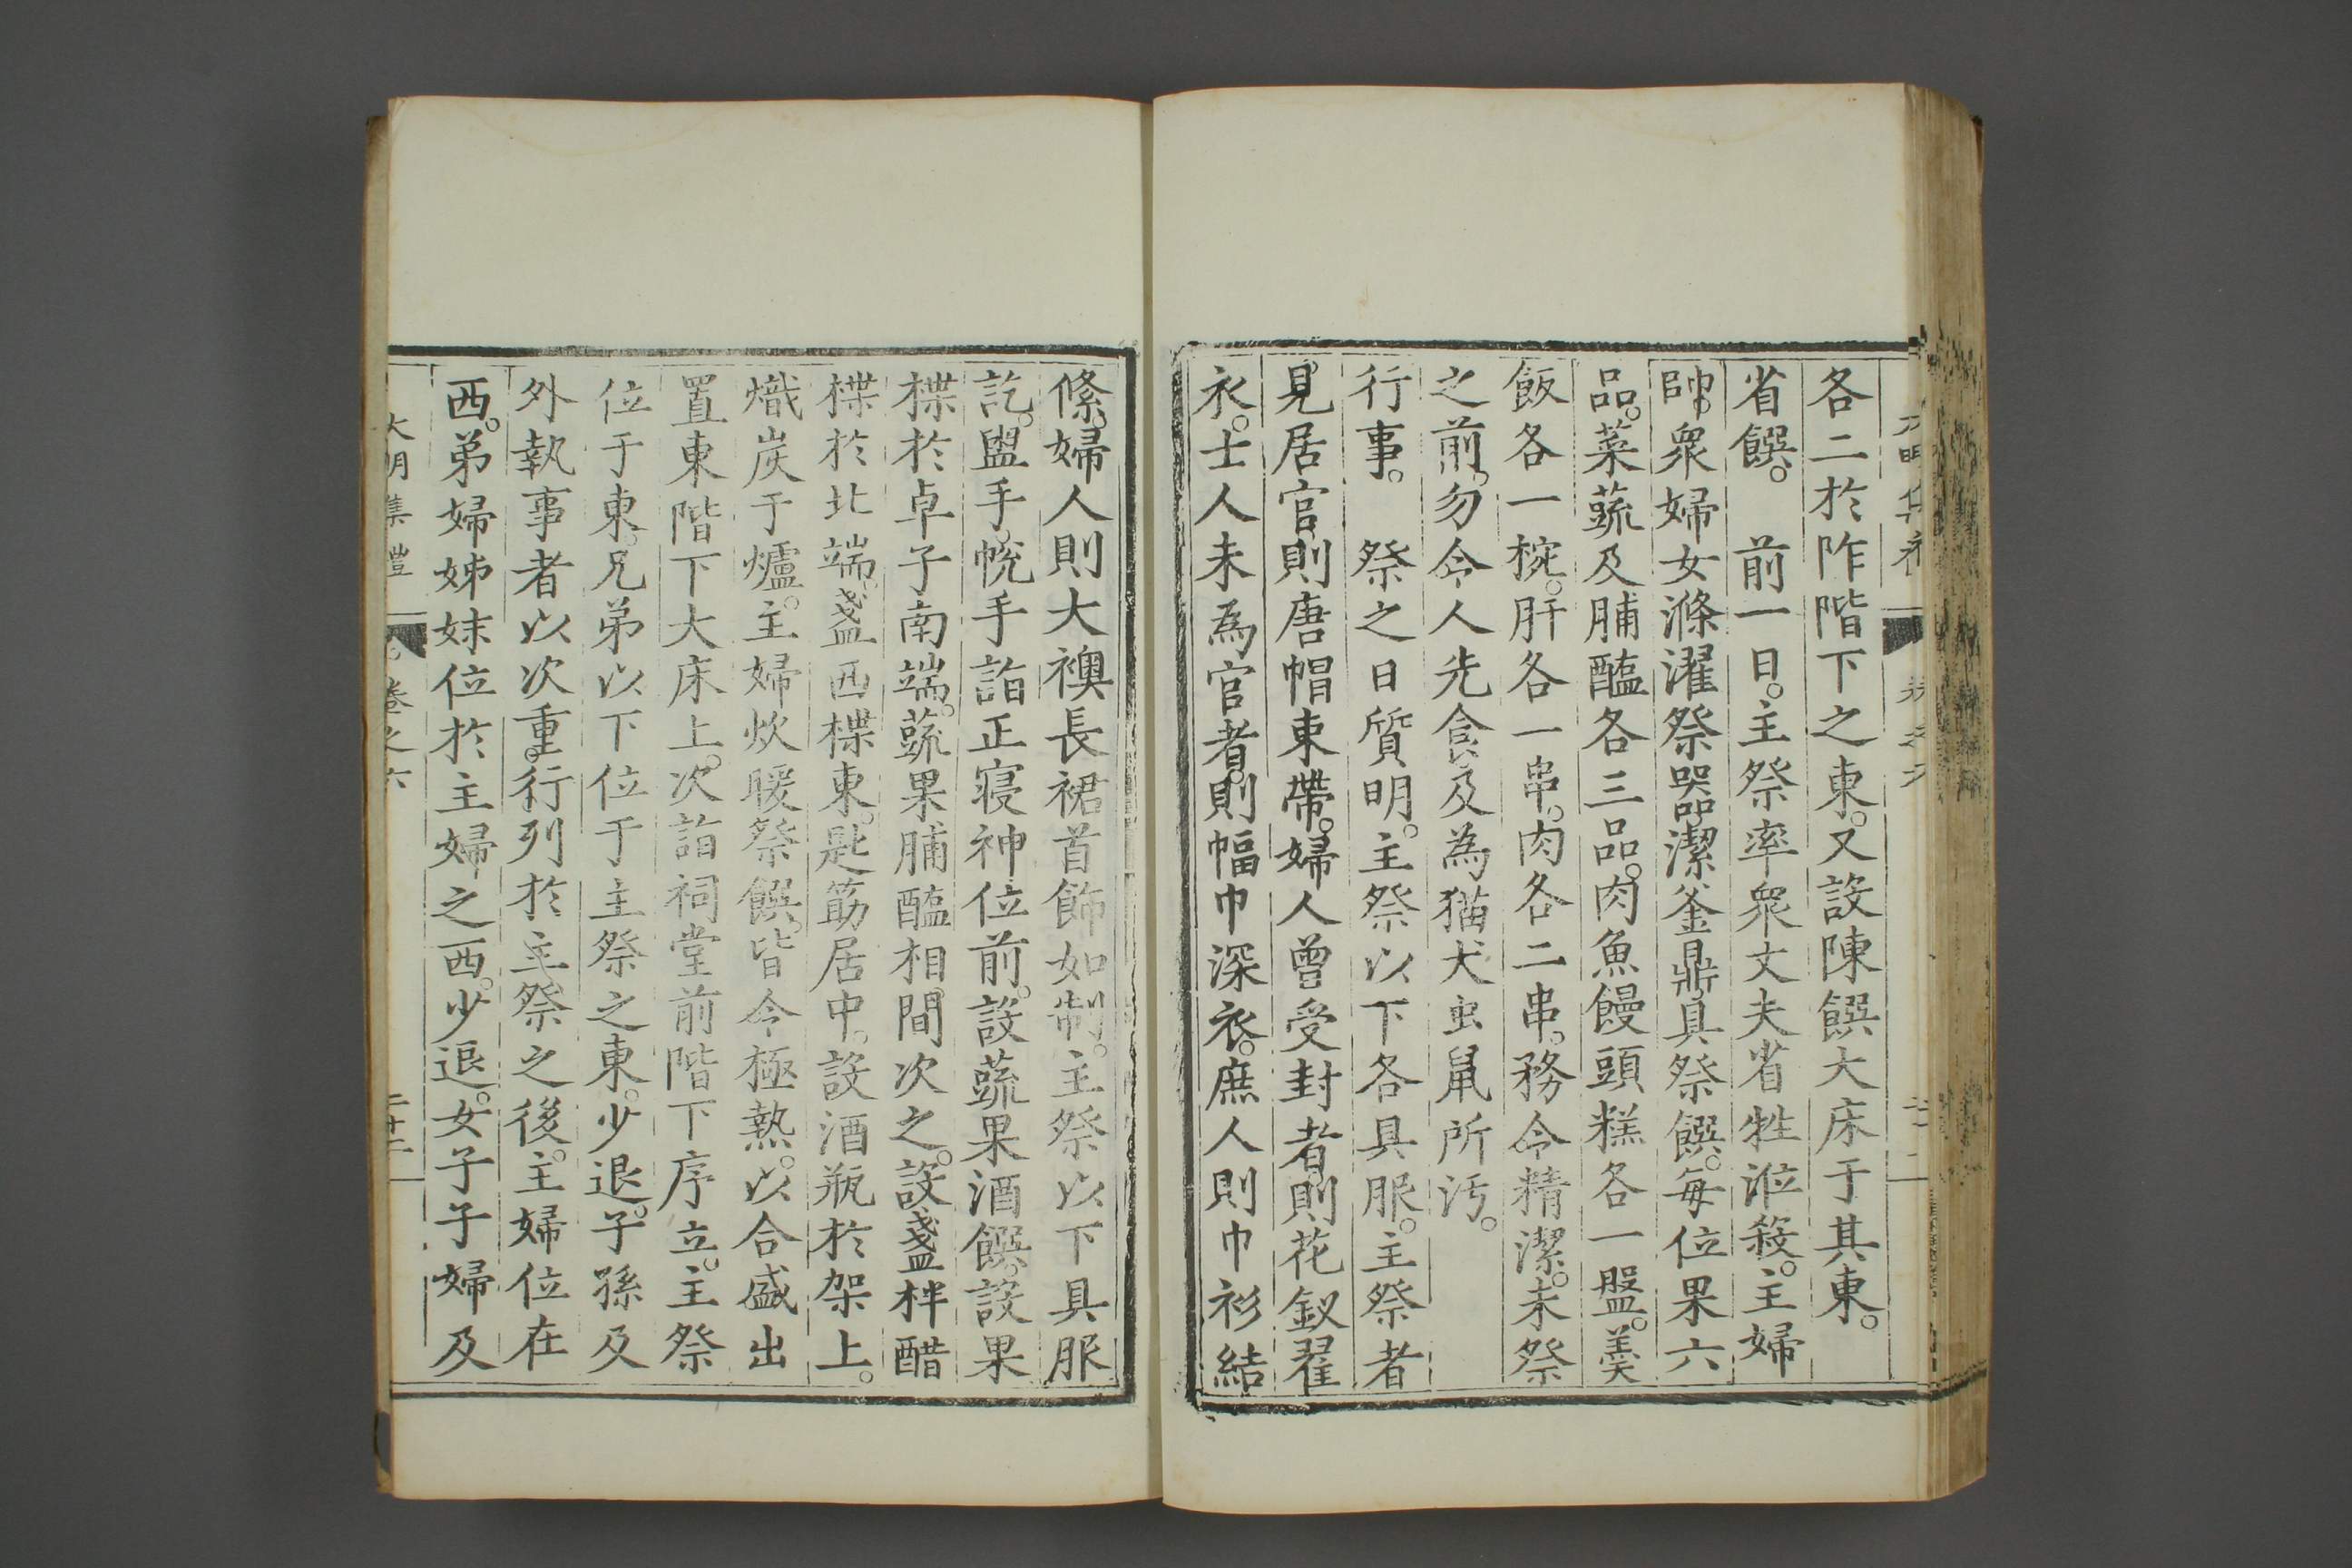 各二於阼階下之東。又設陳饌大床于其東。
省饌。　前一日。主祭率衆丈夫省牲涖殺。主婦
帥。衆婦女滌濯祭器。潔釜鼎。具祭饌。每位果六
品。菜蔬及脯醢各三品。肉魚饅頭糕各一盤。羹
飯各一椀。肝各一串。肉各二串。務令精潔。未祭
之前。勿令人先食及為猫犬虫鼠所污。
行事。　祭之日質明。主祭以下各具服。主祭者
見居官。則唐帽束帶。婦人曾受封者。則花釵翟
衣。士人未為官者。則幅巾深衣。庶人則巾衫結
絛。婦人則大襖長裙首飾如制。主祭以下具服
訖。盥手。帨手詣正寢神位前。設蔬果酒饌。設果
楪於卓子南端。蔬果脯醢相間次之。設盞柈醋
楪於北端。盞西楪東。匙筯居中。設酒瓶於架上。
熾炭于爐。主婦炊暖祭饌。皆令極熱。以合盛出
置東階下大床上。次詣祠堂前階下序立。主祭
位于東。兄弟以下位于主祭之東。少退。子孫及
外執事者以次重。行列於主祭之後。主婦位在
西。弟婦姊妹位於主婦之西。少退。女子子婦及
大明集禮　卷之六　二十二